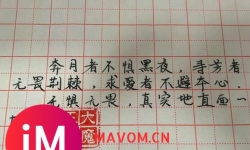 奔月者不惧黑夜，寻芳者
无畏荆棘，求爱者不避本心。
无惧无畏，真实地直面一
大魔
iM
MAVOM.CN